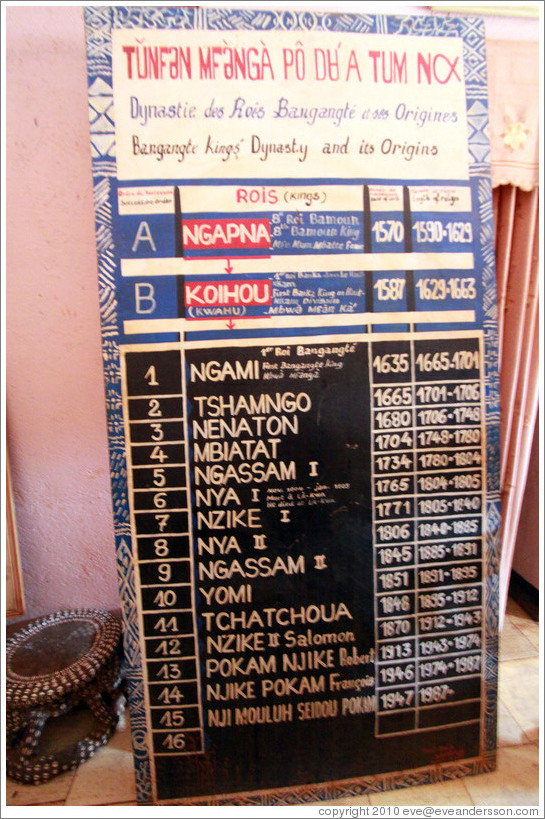 TŬNFƏN MFƏ̀NGÀ PÔ DɄ'A TUM NɑX
Dynastie des Rois Bangangté et ses Origines
Bangangte kings' Dynasty and its Origins
ROIS (kings)
A NGAPNA 8e Roi Bamoun 1570 1590-1629
8th Bamoun King
B KOIHOU 1587 1629-1663
(KWAHU) Mbwà Mfàn Kà'
1er Roi Bangangté
1 NGAMI First Bangangte King 1635 1665-1701
2 TSHAMNGO 1665 1701-1706
3 NENATON 1680 1706-1748
4 MBIATAT 1704 1748-1780
5 NGASSAM I 1734 1780-1804
6 NYA I Nov. 1804 - jan. 1805 1765 1804-1805
7 NZIKE I 1771 1805-1840
8 NYA II 1806 1840-1885
9 NGASSAM II 1845 1885-1891
10 YOMI 1851 1891-1895
11 TCHATCHOUA 1848 1895-1912
12 NZIKE II Salomon 1870 1912-1943
13 POKAM NJIKE Robert 1913 1943-1974
14 NJIKE POKAM François 1946 1974-1987
15 NJI MOULUH SEIDOU POKAM 1947 1987-
16
copyright 2010 eve@eveandersson.com